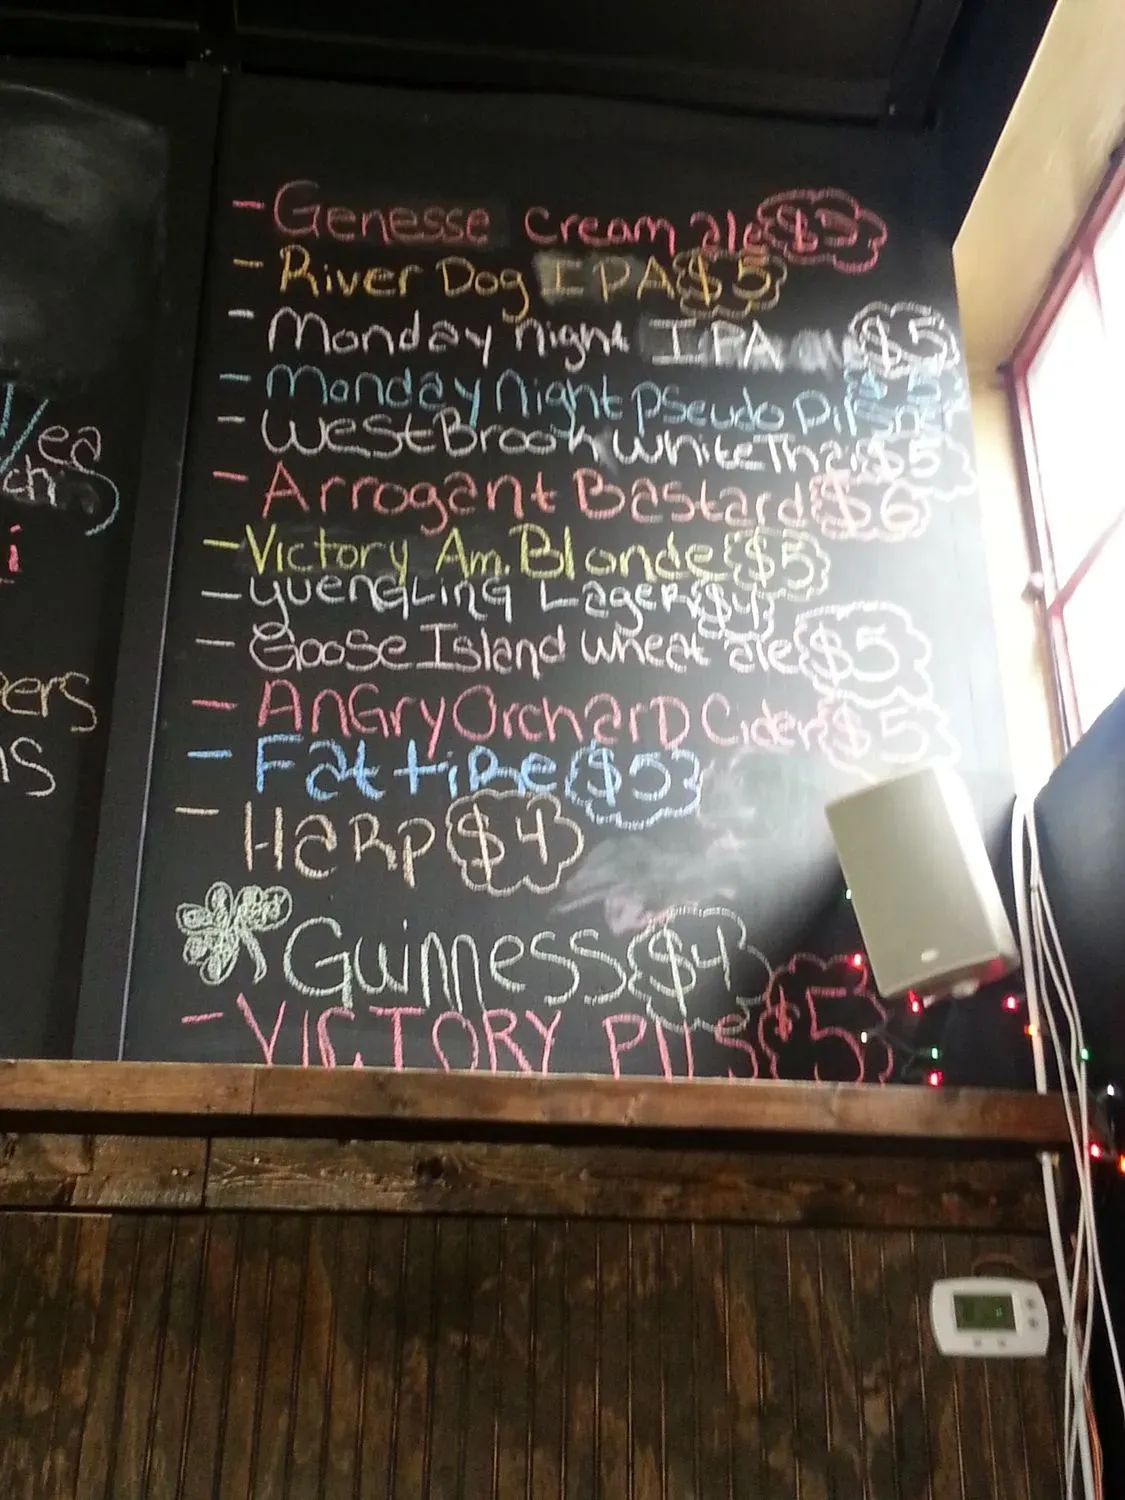 /ea
ch
i
ers
ns
- Genesse cream ale $3
- River Dog IPA $5
- Monday night IPA $5
- Monday Night Pseudo Pilsner $5
- WestBrook White Thai $5
- Arrogant Bastard $6
- Victory Am. Blonde $5
- Yuengling Lager $4
- Goose Island wheat ale $5
- Angry Orchard Cider $5
- Fat tire $5
- Harp $4
Guinness $4
- VICTORY PILS $5